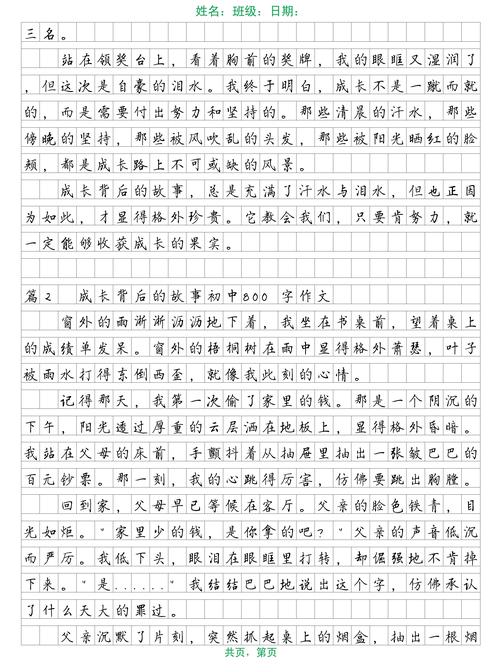 姓名：班级：日期：
三名。
站在领奖台上，看着胸前的奖牌，我的眼眶又湿润了
，但这次是自豪的泪水。我终于明白，成长不是一蹴而就
的，而是需要付出努力和坚持的。那些清晨的汗水，那些
傍晚的坚持，那些被风吹乱的头发，那些被阳光晒红的脸
颊，都是成长路上不可或缺的风景。
成长背后的故事，总是充满了汗水与泪水，但也正因
为如此，才显得格外珍贵。它教会我们，只要肯努力，就
一定能够收获成长的果实。
篇2 成长背后的故事初中800 字作文
窗外的雨淅淅沥沥地下着，我坐在书桌前，望着桌上
的成绩单发呆。窗外的梧桐树在雨中显得格外萧瑟，叶子
被雨水打得东倒西歪，就像我此刻的心情。
记得那天，我第一次偷了家里的钱。那是一个阴沉的
下午，阳光透过厚重的云层洒在地板上，显得格外昏暗。
我站在父母的床前，手颤抖着从抽屉里抽出一张皱巴巴的
百元钞票。那一刻，我的心跳得厉害，仿佛要跳出胸膛。
回到家，父母早已等候在客厅。父亲的脸色铁青，目
光如炬。"家里少的钱，是你拿的吧？"父亲的声音低沉
而严厉。我低下头，眼泪在眼眶里打转，却倔强地不肯掉
下来。"是......"我结结巴巴地说出这个字，仿佛承认
了什么天大的罪过。
父亲沉默了片刻，突然抓起桌上的烟盒，抽出一根烟
共页，第页